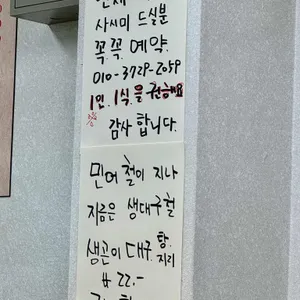 사시미 드실분
꼭.꼭. 예약.
010-3729-2059
1인. 1식.을
감사 합니다.
민어 철이 지나
지금은 생대구철
생곤이 대구 탕.
지리
₩ 22.-